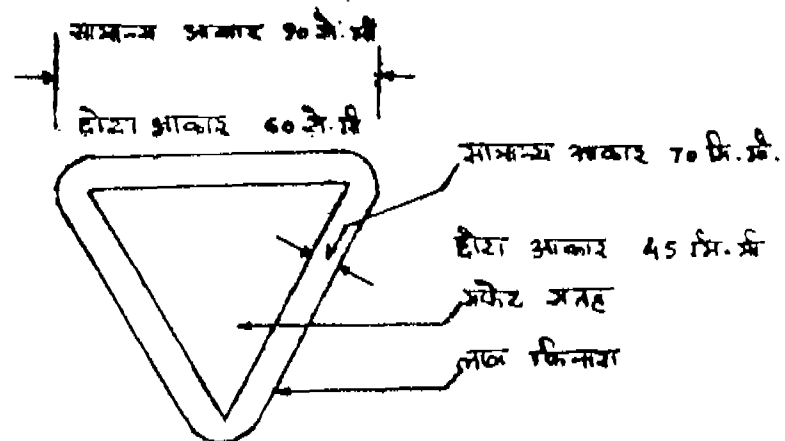 सामान्य आकार 90 से. मी
छोटा आकार 60 से. मी
सामान्य आकार 70 मि. मी.
छोटा आकार 45 मि. मी
सफेद सतह
लाल किनारा